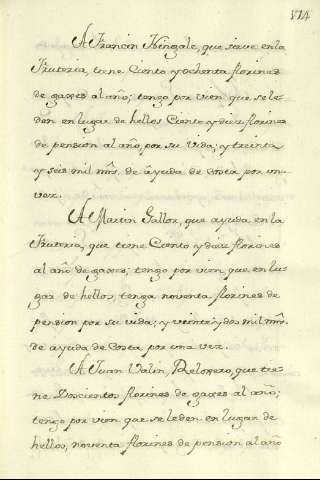 114
A Francin Hingale, que sirve en la
Fruteria, tiene Ciento y ochenta florines
de gaxes al año; tengo por vien que se le
den en lugar de hellos Ciento y diez florines
de pension al año, por su vida; y treinta
y seis mil mrs. de ayuda de costa por una
vez.
A Martin Sallor, que ayuda en la
Fruteria, que tiene Ciento y diez florines
al año de gaxes; tengo por vien, que en lu-
gar de hellos, tenga noventa florines de
pension por su vida; y veinte y dos mil mrs.
de ayuda de Costa por una vez.
A Juan Valin, Reloxero, que tie-
ne Doscientos florines de gaxes al año;
tengo por vien que se le den en lugar de
hellos, noventa florines de pension al año